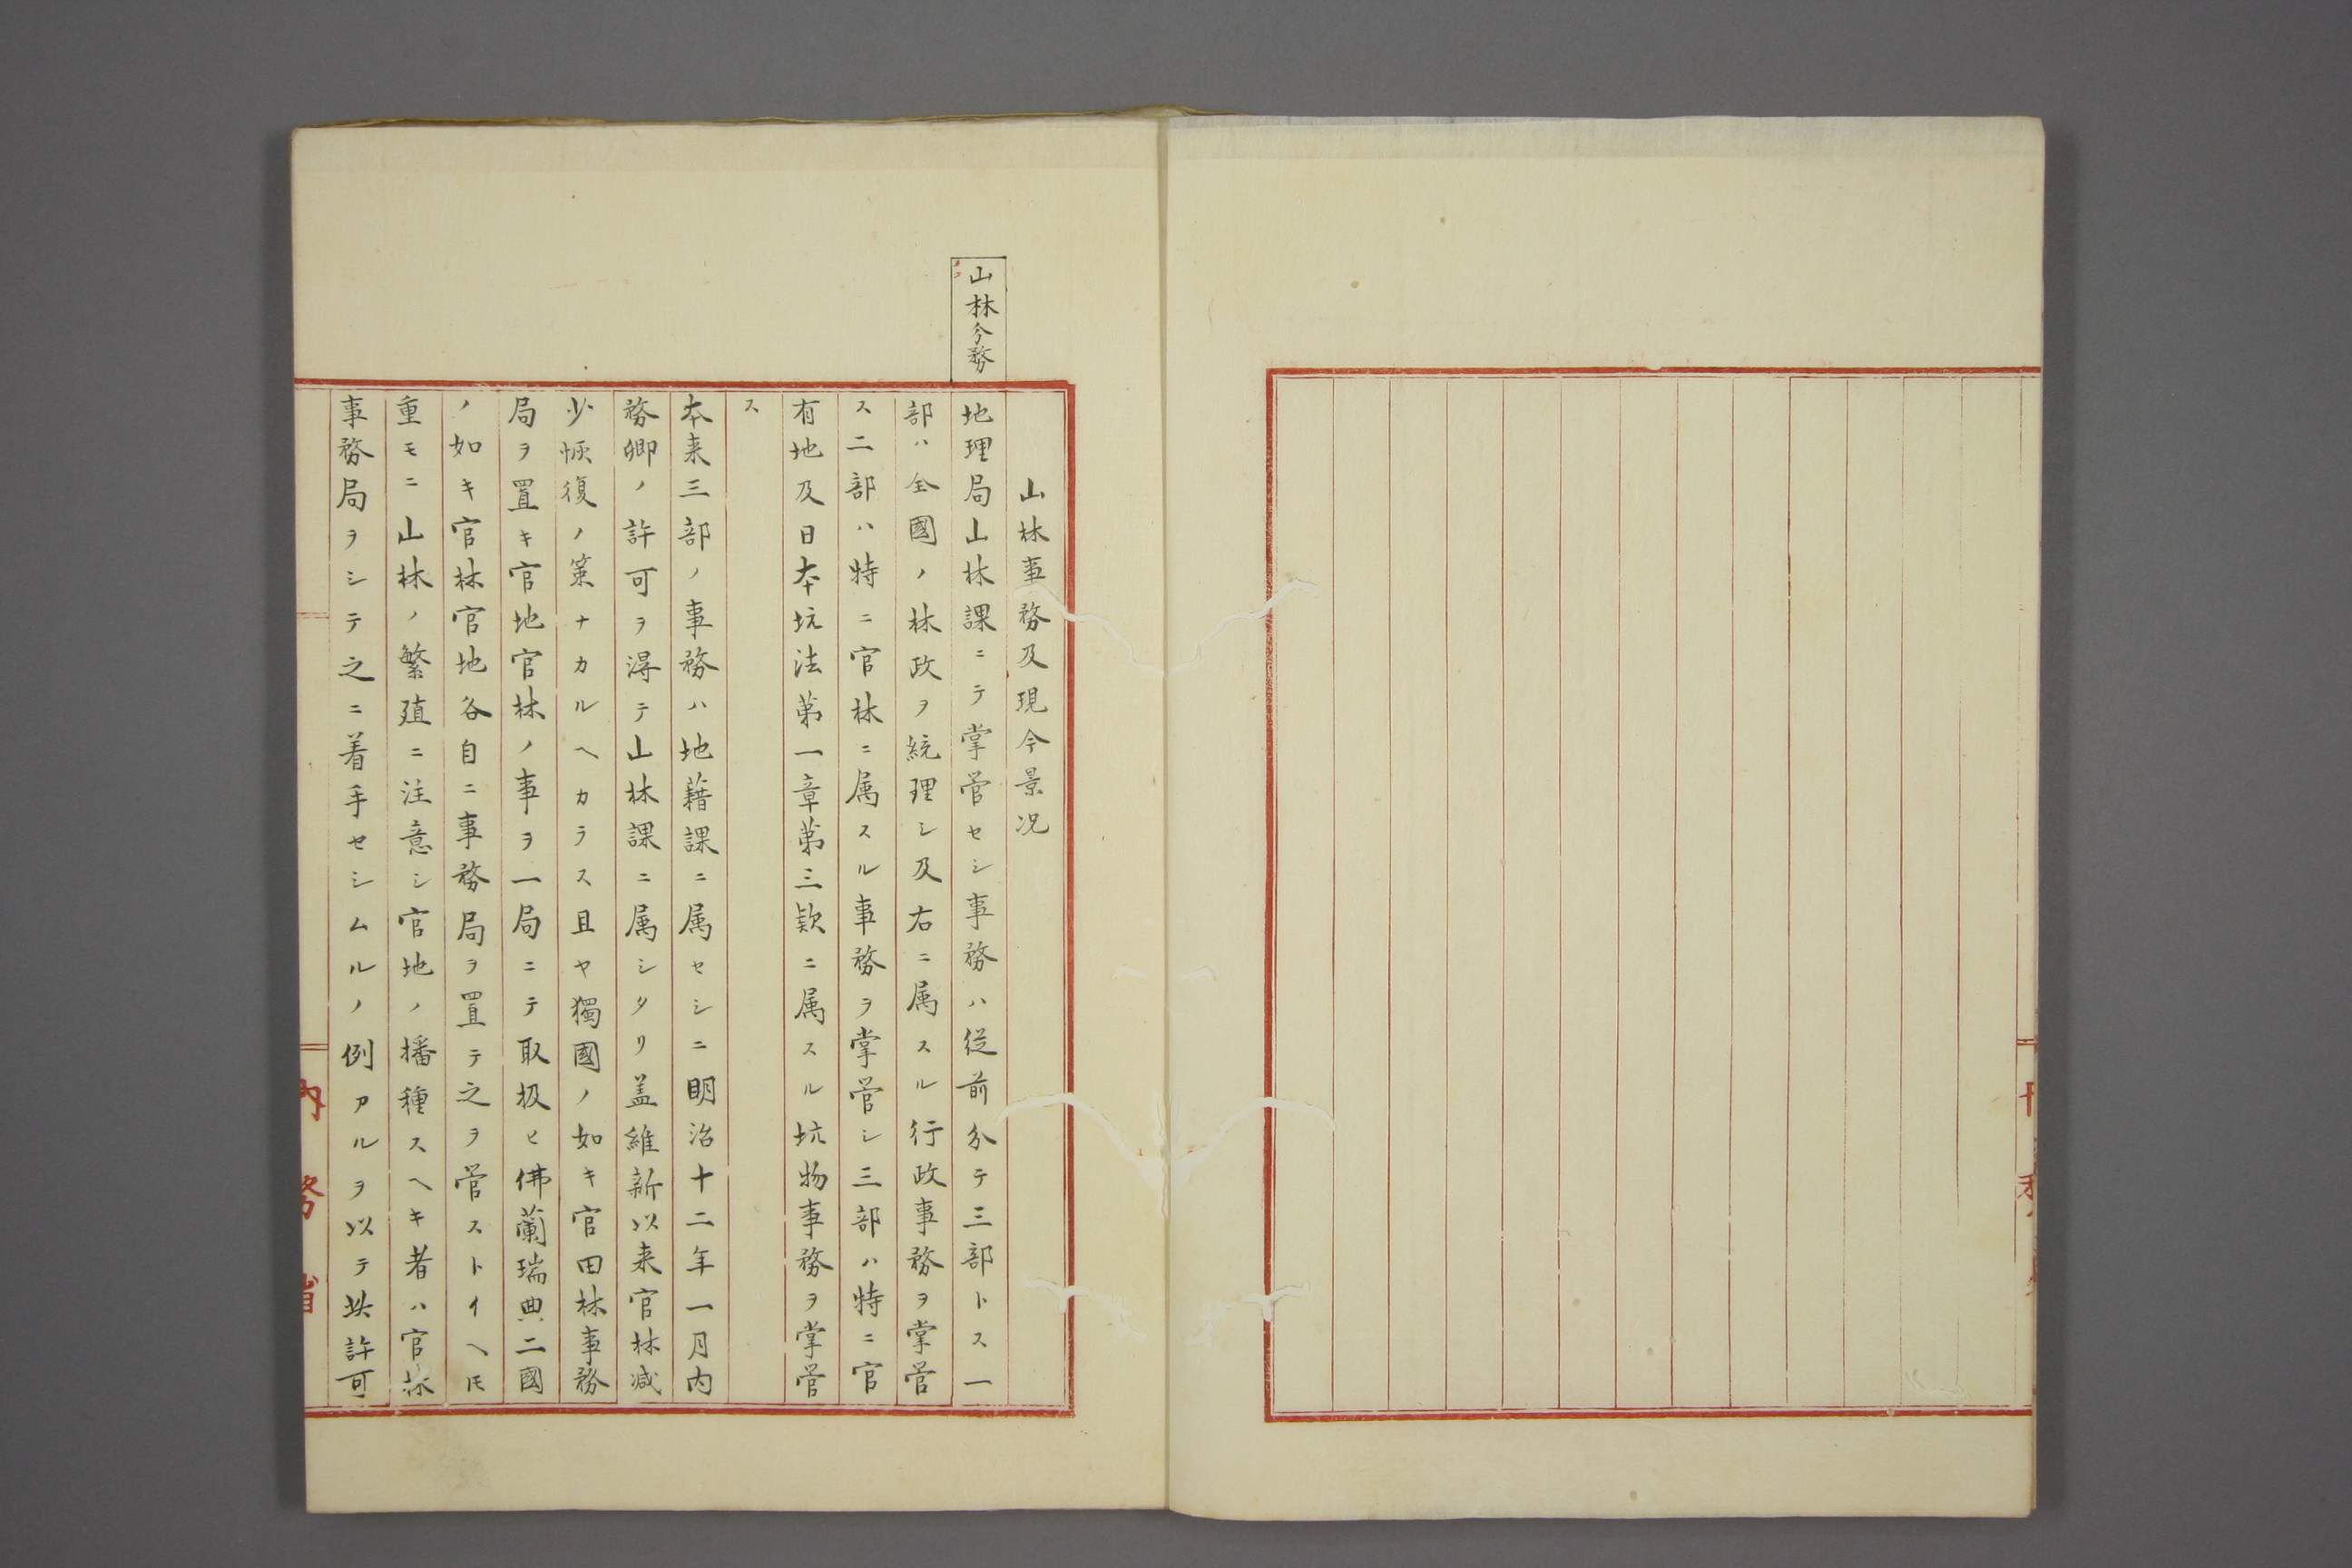 山林事務及現今景况
山林分務
地理局山林課ニテ掌管セシ事務ハ従前分テ三部トス一
部ハ全國ノ林政ヲ統理シ及右ニ属スル行政事務ヲ掌管
ス二部ハ特ニ官林ニ属スル事務ヲ掌管シ三部ハ特ニ官
有地及日本坑法第一章第三欵ニ属スル坑物事務ヲ掌管
ス
本来三部ノ事務ハ地藉課ニ属セシニ明治十二年一月内
務卿ノ許可ヲ得テ山林課ニ属シタリ盖維新以来官林減
少恢復ノ策ナカルヘカラス且ヤ獨國ノ如キ官田林事務
局ヲ置キ官地官林ノ事ヲ一局ニテ取扱ヒ佛蘭瑞典二國
ノ如キ官林官地各自ニ事務局ヲ置テ之ヲ管ストイヘ𪜈
重モニ山林ノ繁殖ニ注意シ官地ノ播種スヘキ者ハ官林
事務局ヲシテ之ニ着手セシムルノ例アルヲ以テ此許可
内務省